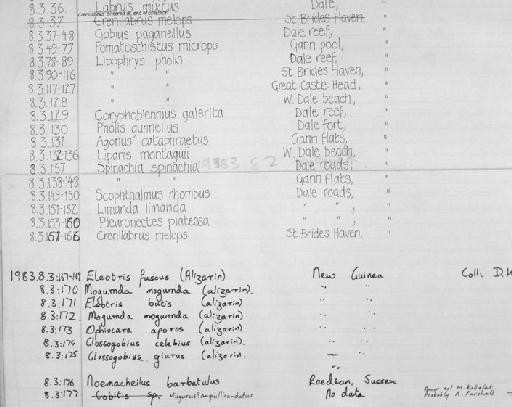 8.3.36. Labrus mixtus Dale, "
8.3.37. Crenilabrus melops St Brides Haven. "
8.3.37-48 Gobius paganellus Dale reef, "
8.3.49-77 Pomatoschistus microps Gann pool, "
8.3.78-89 Lipophrys pholis Dale reef, "
8.3.90-116 " " St Brides Haven, "
8.3.117-127 " " Great Castle Head, "
8.3.128 " " W. Dale beach, "
8.3.129 Coryphoblennius galerita Dale reef, "
8.3.130 Pholis gunnellus Dale fort, "
8.3.131 Agonus cataphractus Gann flats, "
8.3.132-136 Liparis montagui W. Dale beach, "
8.3.137 Spinachia spinachia 1983 8 2 Dale roads, "
8.3.138-48 " " Gann flats, "
8.3.149-150 Scophthalmus rhombus Dale roads, "
8.3.151-152 Limanda limanda " "
8.3.153-160 Pleuronectes platessa " "
8.3.161-166 Crenilabrus melops St Brides Haven. "
1983.8.3:167-169 Eleotris fuscus (Alizarin) New Guinea Coll. D.
8.3:170 Mogurnda mogurnda (alizarin). " "
8.3:171 Eleotris butis (alizarin) " "
8.3:172 Mogurnda mogurnda (alizarin) " "
8.3:173 Ophiocara aporos (alizarin) " "
8.3:174 Glossogobius celebius (alizarin) " "
8.3:175 Glossogobius giurus (alizarin. "
8.3:176 Noemacheilus barbatulus Roedean, Sussex
8.3:177 Gobitis sp. No data